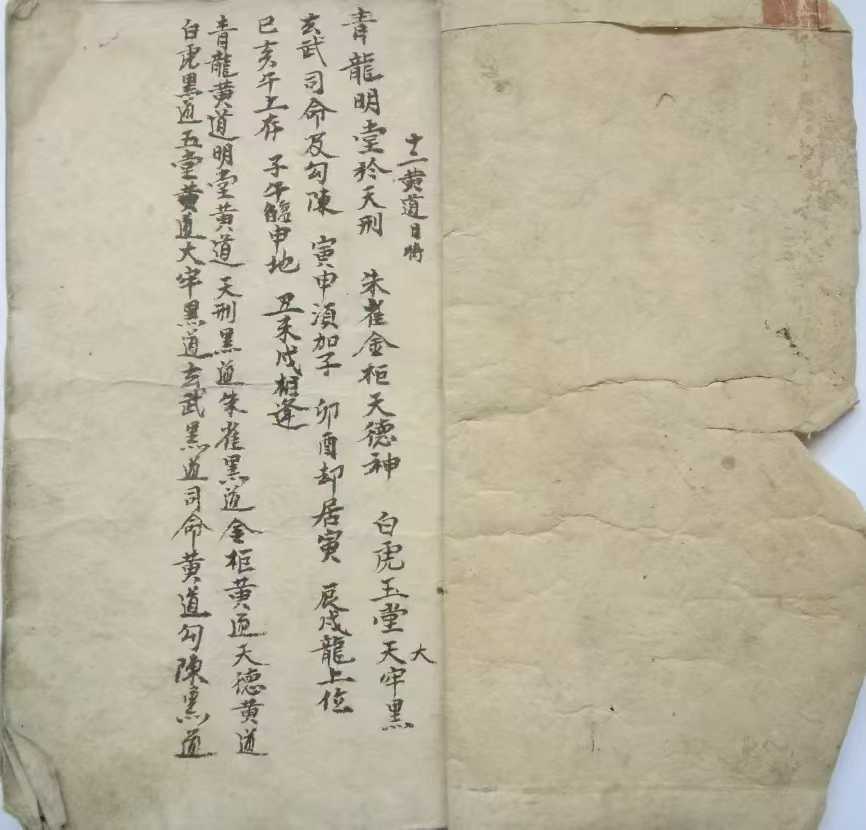 十二黄道日時
青龍明堂矜天刑　朱雀金柜天德神　白虎玉堂天牢黑
大
玄武司命及勾陳　寅申須加子　卯酉却居寅　辰戌龍上位
巳亥午上存　子午臨申地　丑未戌相逢
青龍黄道明堂黄道天刑黑道朱雀黑道金柜黄道天德黄道
白虎黑道五堂黄道大牢黑道玄武黑道司命黄道勾陳黑道